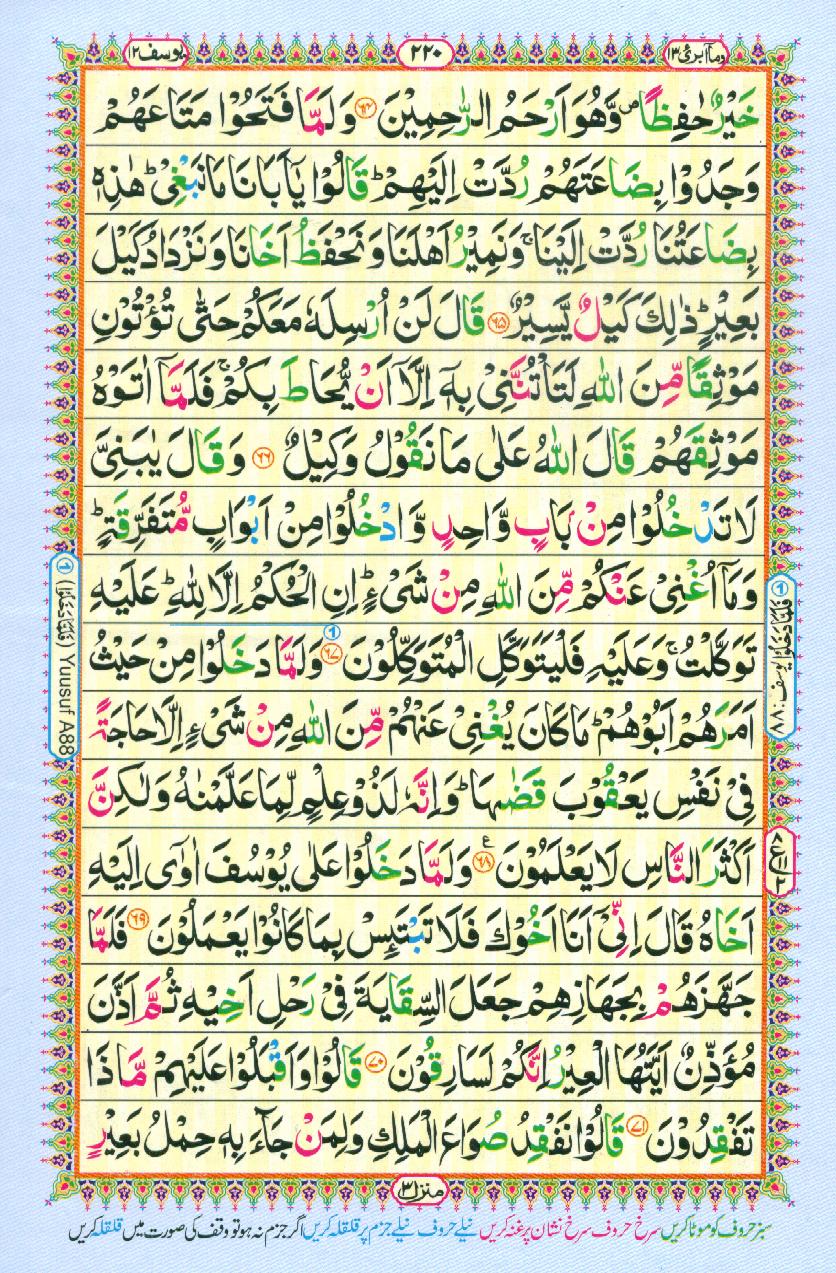 وما ابرئ ١٣
٢٢٠
يوسف ١٢
خَيْرٌ حٰفِظًا ۪ وَّهُوَ اَرْحَمُ الرّٰحِمِيْنَ ﴿۶۴﴾ وَلَمَّا فَتَحُوْا مَتَاعَهُمْ
وَجَدُوْا بِضَاعَتَهُمْ رُدَّتْ اِلَيْهِمْ ؕ قَالُوْا يٰۤاَبَانَا مَا نَبْغِىْ ؕ هٰذِهٖ
بِضَاعَتُنَا رُدَّتْ اِلَيْنَا ۚ وَنَمِيْرُ اَهْلَنَا وَنَحْفَظُ اَخَانَا وَنَزْدَادُ كَيْلَ
بَعِيْرٍ ؕ ذٰلِكَ كَيْلٌ يَّسِيْرٌ ﴿۶۵﴾ قَالَ لَنْ اُرْسِلَهٗ مَعَكُمْ حَتّٰى تُؤْتُوْنِ
مَوْثِقًا مِّنَ اللّٰهِ لَتَاْتُنَّنِىْ بِهٖۤ اِلَّاۤ اَنْ يُّحَاطَ بِكُمْ ۚ فَلَمَّاۤ اٰتَوْهُ
مَوْثِقَهُمْ قَالَ اللّٰهُ عَلٰى مَا نَقُوْلُ وَكِيْلٌ ﴿۶۶﴾ وَقَالَ يٰبَنِىَّ
لَا تَدْخُلُوْا مِنْۢ بَابٍ وَّاحِدٍ وَّادْخُلُوْا مِنْ اَبْوَابٍ مُّتَفَرِّقَةٍ ؕ
وَمَاۤ اُغْنِىْ عَنْكُمْ مِّنَ اللّٰهِ مِنْ شَىْءٍ ؕ اِنِ الْحُكْمُ اِلَّا لِلّٰهِ ؕ عَلَيْهِ
تَوَكَّلْتُ ۚ وَعَلَيْهِ فَلْيَتَوَكَّلِ الْمُتَوَكِّلُوْنَ ﴿۶۷﴾ وَلَمَّا دَخَلُوْا مِنْ حَيْثُ
اَمَرَهُمْ اَبُوْهُمْ ؕ مَا كَانَ يُغْنِىْ عَنْهُمْ مِّنَ اللّٰهِ مِنْ شَىْءٍ اِلَّا حَاجَةً
فِىْ نَفْسِ يَعْقُوْبَ قَضٰىهَا ؕ وَاِنَّهٗ لَذُوْ عِلْمٍ لِّمَا عَلَّمْنٰهُ وَلٰكِنَّ
اَكْثَرَ النَّاسِ لَا يَعْلَمُوْنَ ﴿۶۸﴾ وَلَمَّا دَخَلُوْا عَلٰى يُوْسُفَ اٰوٰٓى اِلَيْهِ
اَخَاهُ قَالَ اِنِّىْۤ اَنَا اَخُوْكَ فَلَا تَبْتَئِسْ بِمَا كَانُوْا يَعْمَلُوْنَ ﴿۶۹﴾ فَلَمَّا
جَهَّزَهُمْ بِجَهَازِهِمْ جَعَلَ السِّقَايَةَ فِىْ رَحْلِ اَخِيْهِ ثُمَّ اَذَّنَ
مُؤَذِّنٌ اَيَّتُهَا الْعِيْرُ اِنَّكُمْ لَسَارِقُوْنَ ﴿۷۰﴾ قَالُوْا وَاَقْبَلُوْا عَلَيْهِمْ مَّاذَا
تَفْقِدُوْنَ ﴿۷۱﴾ قَالُوْا نَفْقِدُ صُوَاعَ الْمَلِكِ وَلِمَنْ جَآءَ بِهٖ حِمْلُ بَعِيْرٍ
① فَلَمَّا دَخَلُوْا يوسف: ٨٨
① (فَلَمَّا دَخَلُوْا) Yousuf A88
منزل ٣
سبز حروف کو موٹا کریں سرخ حروف سرخ نشان پر غنہ کریں نیلے حروف نیلے جزم پر قلقلہ کریں اگر جزم نہ ہو تو وقف کی صورت میں قلقلہ کریں